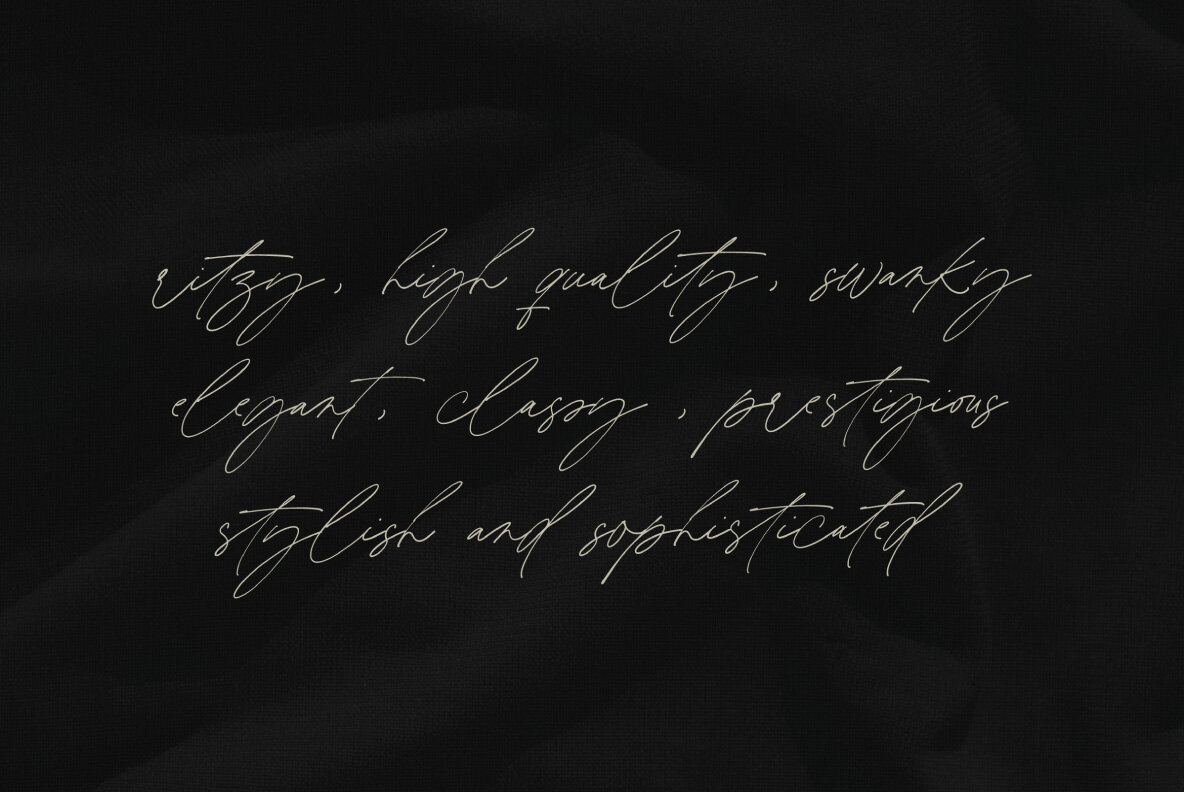 ritzy, high quality, swanky
elegant, classy , prestigious
stylish and sophisticated